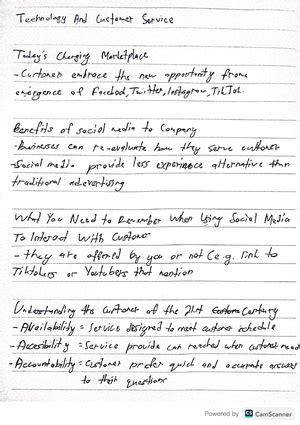 Technology And Customer Service
Today's Changing Marketplace
- Customers embrace the new opportunity from
emergence of Facebook, Twitter, Instagram, TikTok.
Benefits of social media to Company
- Businesses can re-evaluate how they serve customer
- Social media provide less expensive alternative than
traditional advertising
What You Need to Remember When Using Social Media
To Interact With Customer
- they are offered by you or not (e.g. link to
Tiktokers or Youtubers that mention
Understanding the Customer of the 21st Century
- Availability = Service designed to meet customer schedule
- Accesibility = Service provide can reached when customer need
- Accountability = Customer prefer quick and accurate answers
to their questions
Powered by CS CamScanner